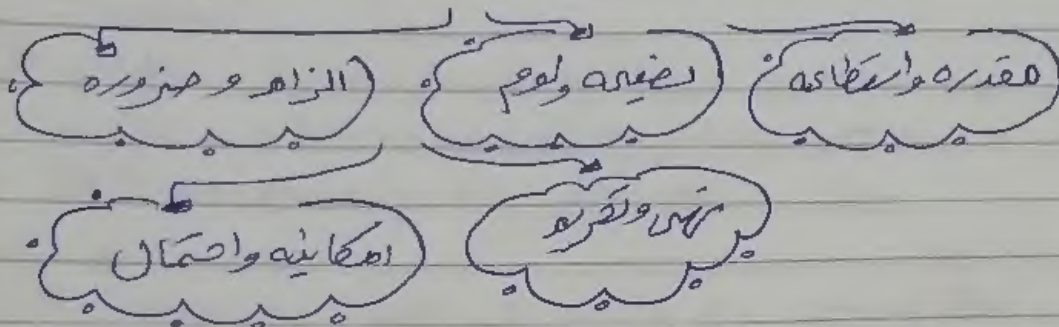 مقدره واستطاعه
نصيحه ولوم
الزام و ضروره
نهي وتحريم
امكانيه واحتمال